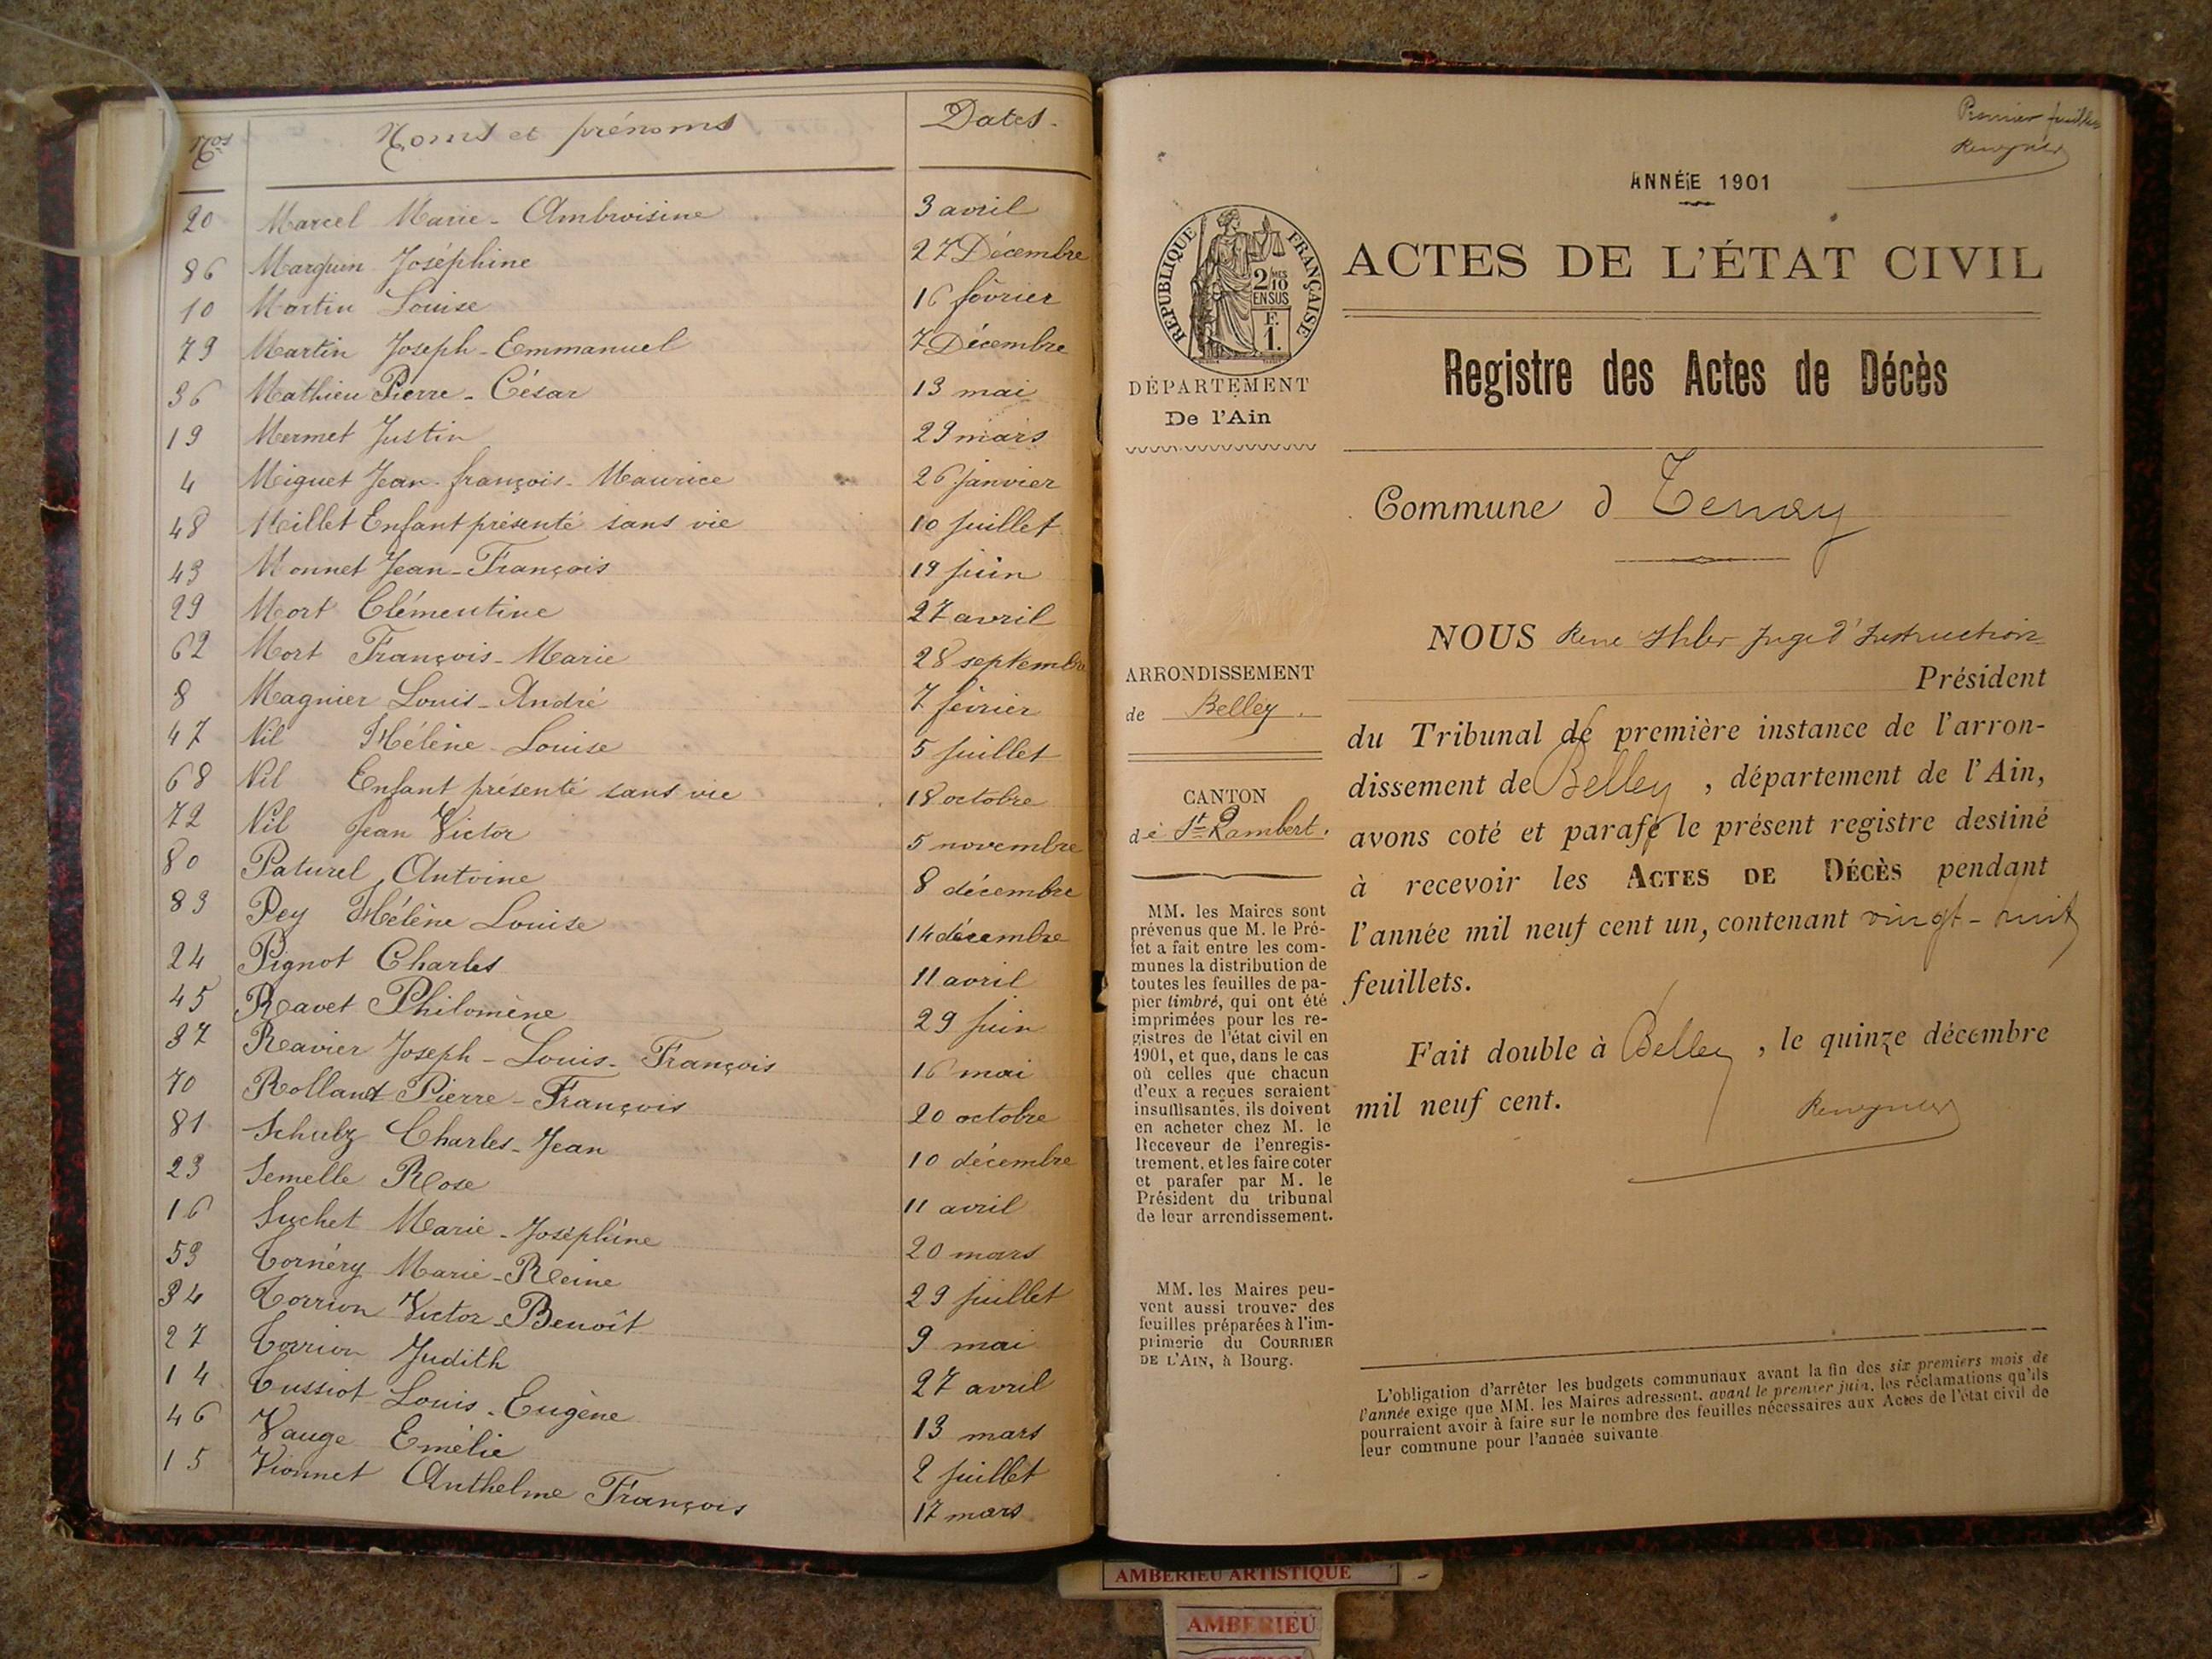 Nos Noms et prénoms Dates.
20 Marcel Marie-Ambroisine 3 avril
86 Marguin Joséphine 27 Décembre
10 Martin Louise 16 février
79 Martin Joseph-Emmanuel 7 Décembre
36 Mathieu Pierre-César 13 mai
19 Mermet Justin 29 mars
4 Miguet Jean-françois-Maurice 26 janvier
48 Millet Enfant présenté sans vie 10 juillet
43 Monnet Jean-François 19 juin
29 Mort Clémentine 27 avril
62 Mort François-Marie 28 septembre
8 Magnier Louis-André 7 février
47 Nil Hélène Louise 5 juillet
68 Nil Enfant présenté sans vie 18 octobre
72 Nil Jean Victor 5 novembre
80 Paturel Antoine 8 décembre
83 Pey Hélène Louise 14 décembre
24 Pignot Charles 11 avril
45 Ravet Philomène 29 juin
37 Ravier Joseph-Louis-François 16 mai
70 Rolland Pierre-François 20 octobre
81 Schulz Charles-Jean 10 décembre
23 Semelle Rose 11 avril
16 Suchet Marie-Joséphine 20 mars
53 Tornéry Marie-Reine 29 juillet
34 Torrion Victor-Benoît 9 mai
27 Torrion Judith 27 avril
14 Tussiot Louis-Eugène 13 mars
46 Vauge Emélie 2 juillet
15 Vionnet Anthelme François 17 mars
Premier feuillet
ANNÉE 1901
RÉPUBLIQUE FRANÇAISE
2/10 MES
EN SUS
F.
1.
ACTES DE L'ÉTAT CIVIL
Registre des Actes de Décès
DÉPARTEMENT
De l'Ain
Commune d Tenay
ARRONDISSEMENT
de Belley.
CANTON
de St Rambert.
MM. les Maires sont
prévenus que M. le Pré-
fet a fait entre les com-
munes la distribution de
toutes les feuilles de pa-
pier timbré, qui ont été
imprimées pour les re-
gistres de l'état civil en
1901, et que, dans le cas
où celles que chacun
d'eux a reçues seraient
insuffisantes, ils doivent
en acheter chez M. le
Receveur de l'enregis-
trement, et les faire coter
et parafer par M. le
Président du tribunal
de leur arrondissement.
MM. les Maires peu-
vent aussi trouver des
feuilles préparées à l'im-
primerie du COURRIER
DE L'AIN, à Bourg.
NOUS Juge d'Instruction
Président
du Tribunal de première instance de l'arron-
dissement de Belley, département de l'Ain,
avons coté et parafé le présent registre destiné
à recevoir les ACTES DE DÉCÈS pendant
l'année mil neuf cent un, contenant vingt-huit
feuillets.
Fait double à Belley, le quinze décembre
mil neuf cent.
L'obligation d'arrêter les budgets communaux avant la fin des six premiers mois de
l'année exige que MM. les Maires adressent, avant le premier juin, les réclamations qu'ils
pourraient avoir à faire sur le nombre des feuilles nécessaires aux Actes de l'état civil de
leur commune pour l'année suivante
AMBERIEU ARTISTIQUE
AMBERIEU